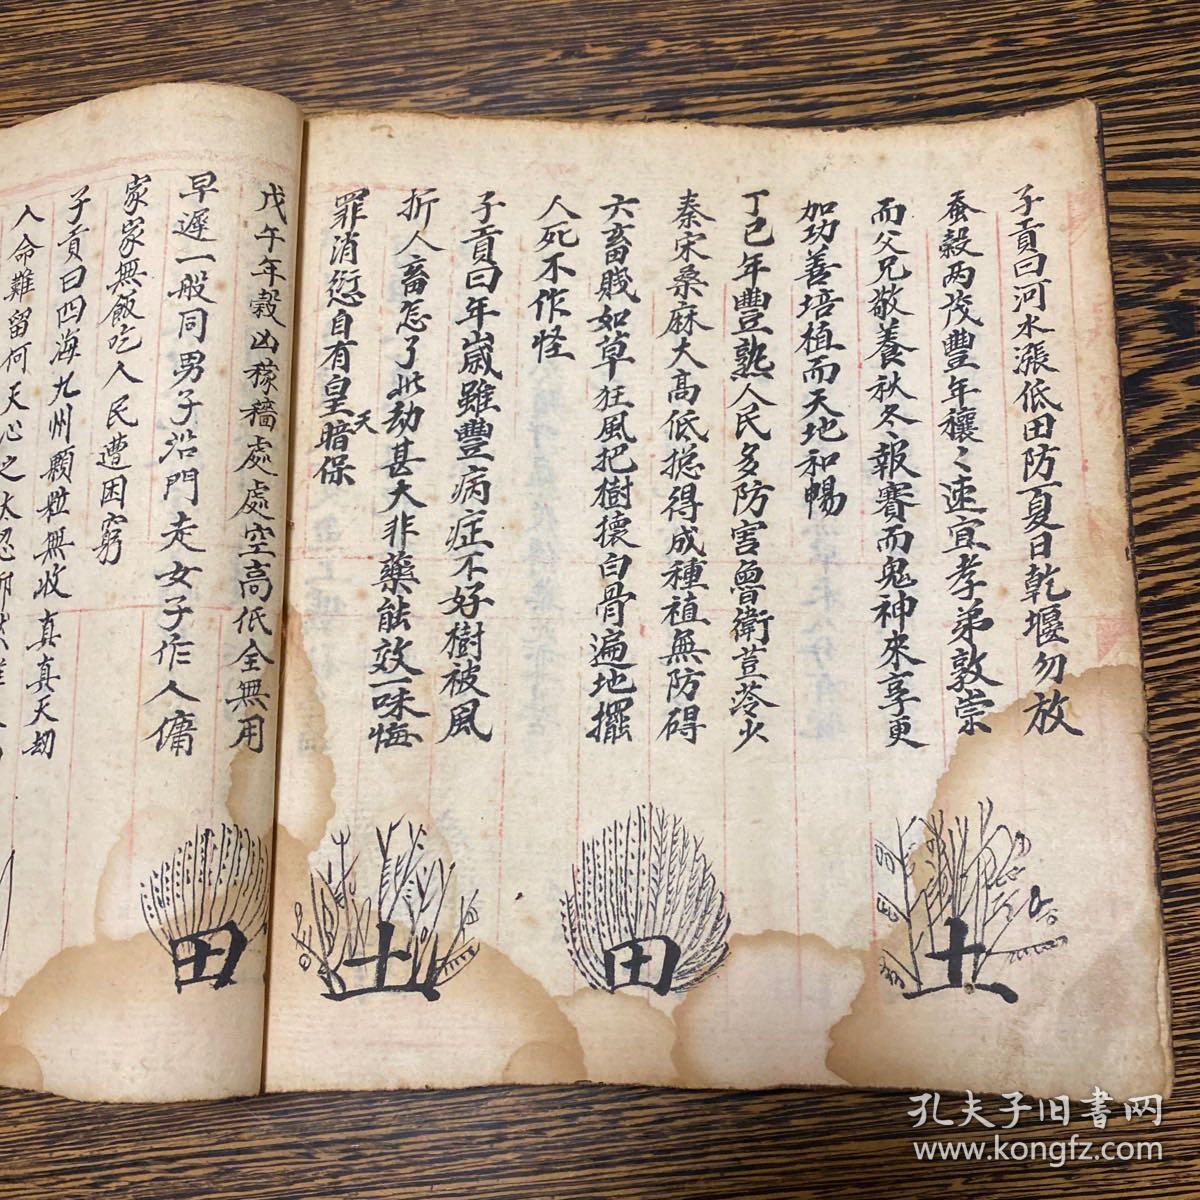 子貢曰河水漲低田防夏日乾堰勿放
蚕穀两茂豐年穰々速宜孝弟敦崇
而父兄敬養秋冬報賽而鬼神來享更
加功善培植而天地和暢
丁巳年豐熟人民多防害魯衛荳苓少
秦宋桑麻大高低捴得成種植無防碍
六畜賎如草狂風把樹懐白骨遍地擺
人死不作怪
子貢曰年嵗雖豐病症不好樹被風
折人畜怎了此劫甚大非藥能效一味悔
罪消愆自有皇天暗保
戊午年穀凶稼穡處處空高低全無用
早遲一般同男子沿門走女子作人傭
家家無飯吃人民遭困窮
子貢曰四海九州顆粒無收真真天劫
人命難留何天心之太忍
土
田
土
田
孔夫子旧書网
www.kongfz.com